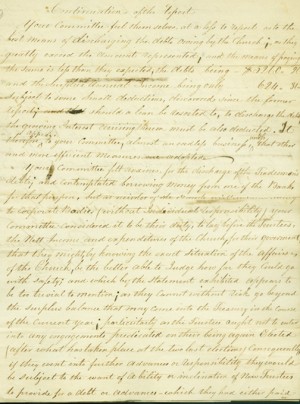 Continuation of the Report
Your Committee, feel themselves at a loss to report upon the
best means of discharging the debts owing by the Church; as they
greatly exceed the amount represented; and the means of paying
the same is less than they expected, the debts being
as the surplus annual Income being only 684.
subject to some small deductions, discovered since the former
report; should a loan be
the growing Interest accruing thereon must be also deducted. It
therefore, to your Committee, almost hopeless, other
and more efficient measures adopted
Your Committee felt anxious for the discharge of the
debts; and contemplated borrowing money from one of the Banks
for that purpose, but as
to Corporate Bodies, (without Individual responsibility) your
Committee considered it to be their duty, to lay before the Trustees,
the Nett Income and expenditures of the Church, for their government
that they might by knowing the exact situation of the Affairs
of the Church, be the better able to Judge how far they could go
with safety; and which by the statement exhibited appears to
be too trivial to mention; as they cannot without risk go beyond
the surplus balance that may come into the Treasury in the course
of the current year; particularly as the Trustees ought not to enter
into any engagements predicated on their being again Elected
after what has taken place at the two last elections; Consequently
if they went into further advances or responsibility they would
be subject to the want of ability or inclination of New Trustees
to provide for a debt or advance which they had either paid